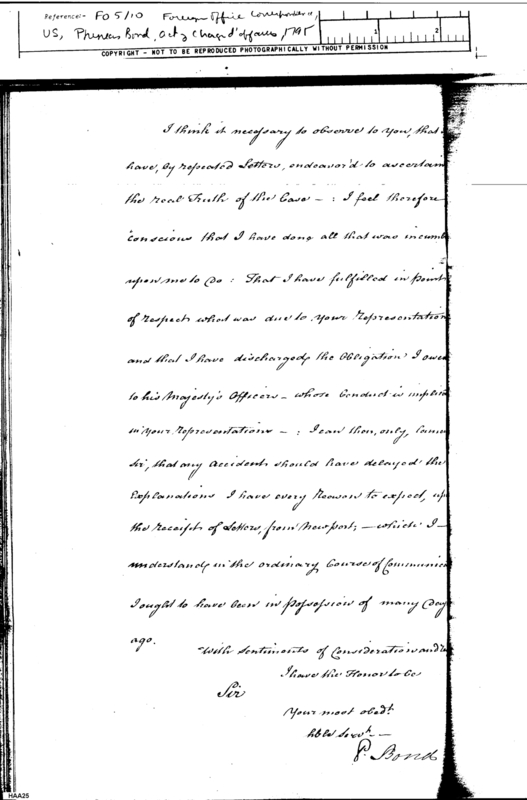 Reference:- FO 5/10 Foreign Office Correspondence,
US, Phineas Bond, acty Chargé d'affaires, 1795
1 2
COPYRIGHT - NOT TO BE REPRODUCED PHOTOGRAPHICALLY WITHOUT PERMISSION
I think it necessary to observe to you, that
have, by repeated Letters, endeavor'd to ascertain
the real Truth of the Case - : I feel therefore
conscious that I have done all that was incumb
upon me to do : That I have fulfilled in point
of respect what was due to your Representation
and that I have discharged the Obligation I owed
to his Majesty's Officers - whose Conduct is implica
in your Representations - : I can then, only, lamen
Sir, that any accident should have delayed the
Explanations I have every Reason to expect, up
the receipt of Letters, from Newport; - which I -
understand, in the ordinary Course of Communica
I ought to have been in possession of many Days
ago.
With Sentiments of Consideration and
I have the Honor to be
Sir
Your most obedt.
hble Servt. -
P. Bond
HAA25